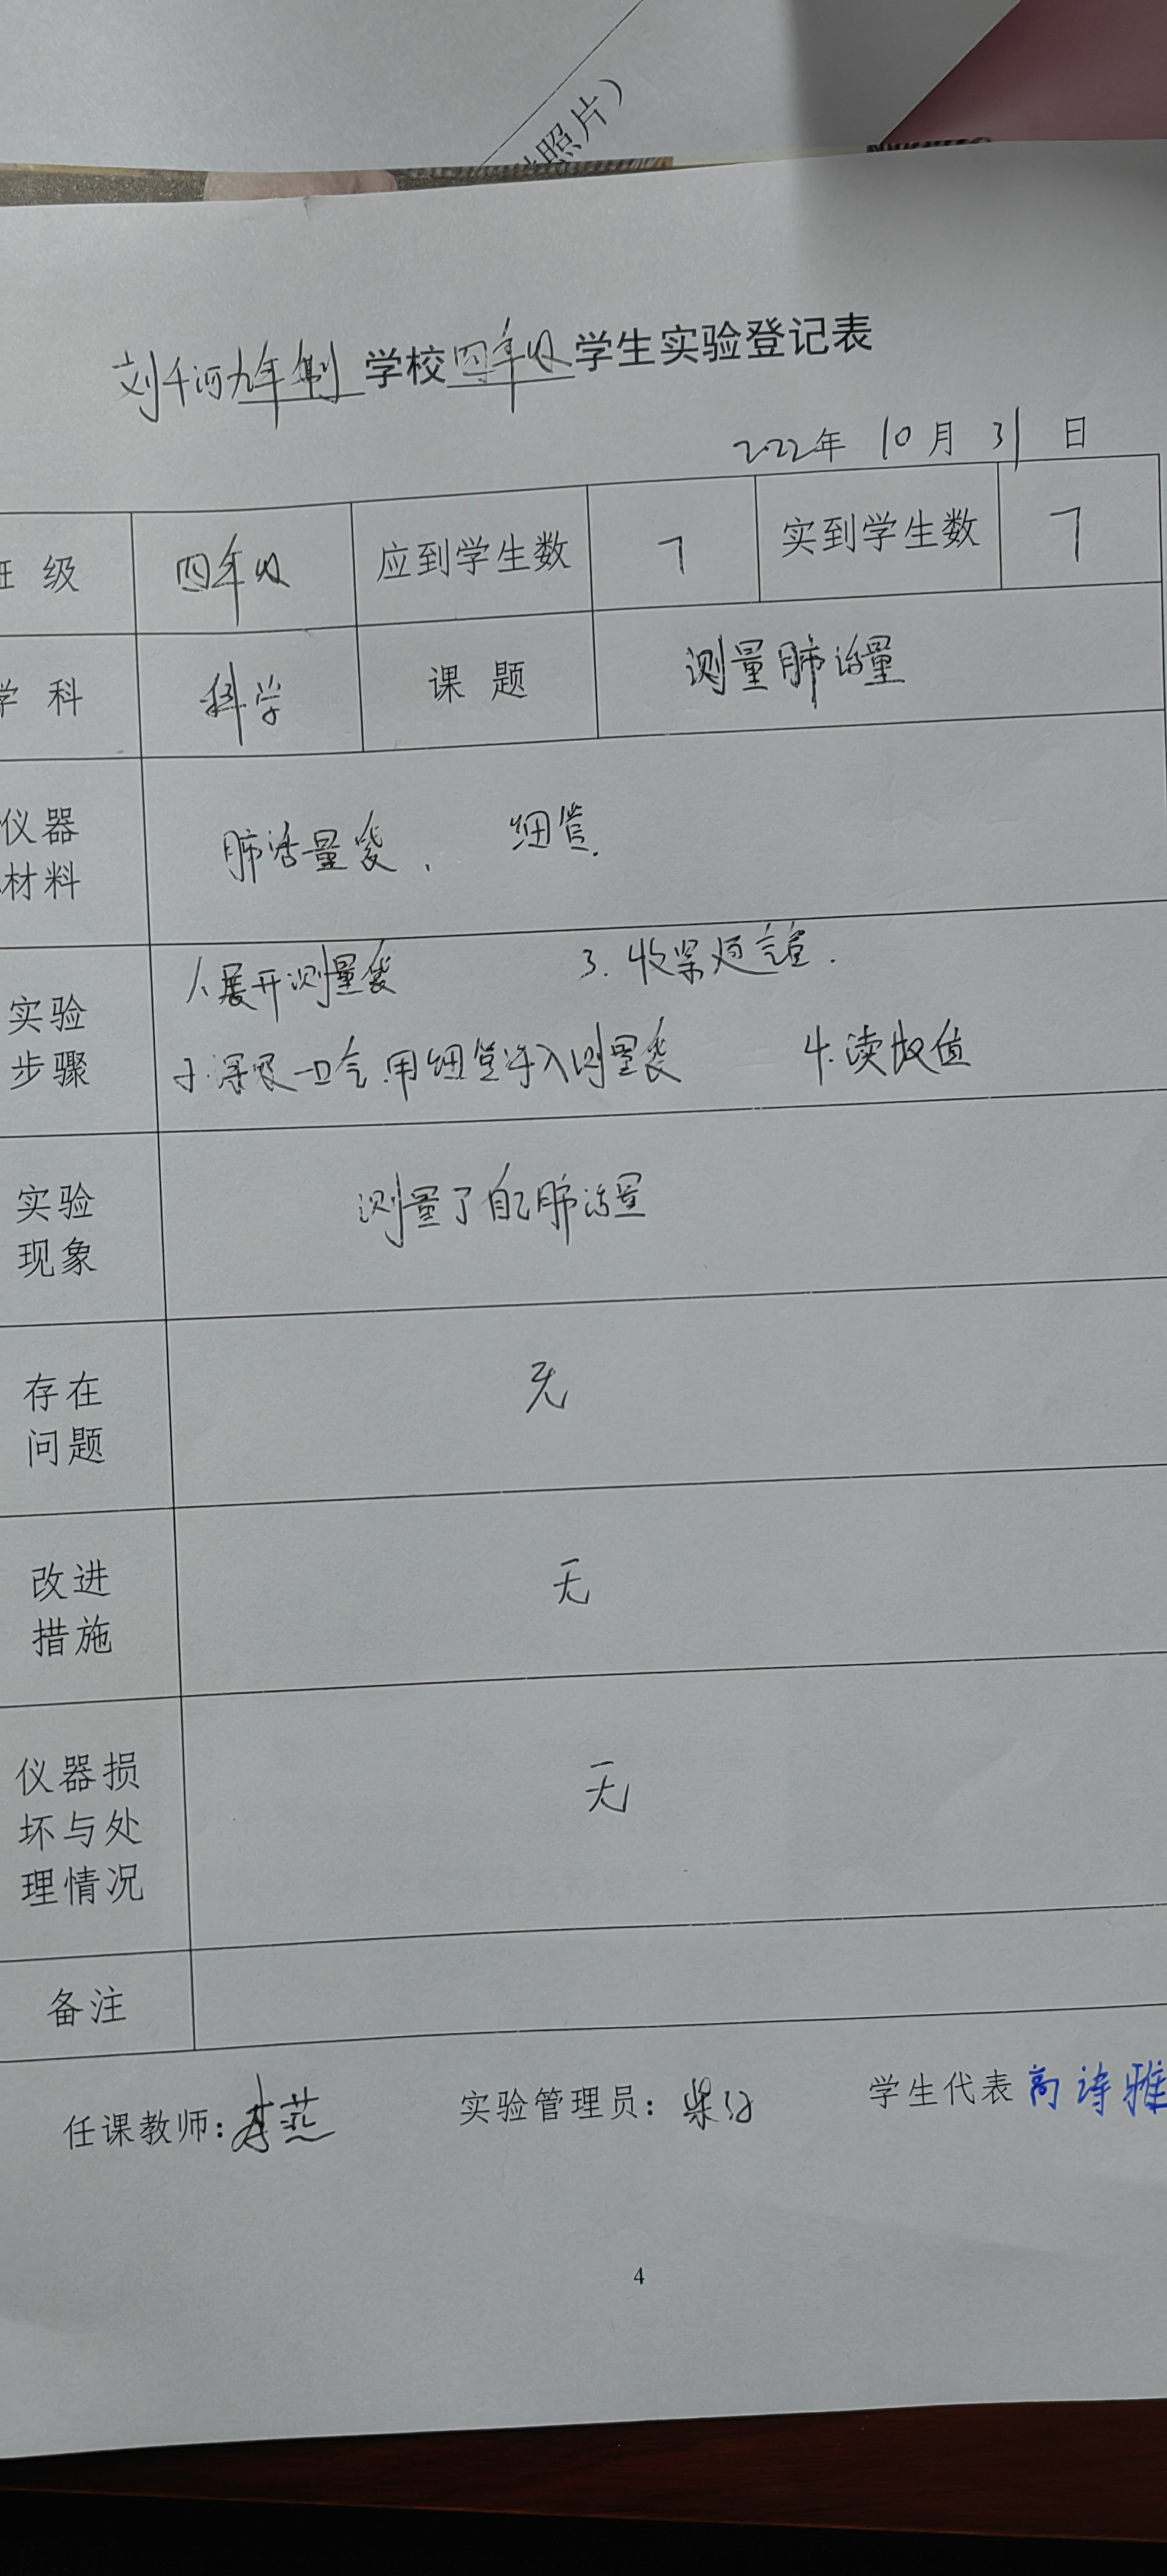 照片）
刘千河九年制学校四年级学生实验登记表
2022年 10月 31日
班级 四年级 应到学生数 7 实到学生数 7
学科 科学 课题 测量肺活量
仪器
材料
肺活量袋、 细管.
实验
步骤
1.展开测量袋 3.收紧 .
2.深吸一口气.用细管 入测量袋 4.读数值
实验
现象
测量了自己肺活量
存在
问题
无
改进
措施
无
仪器损
坏与处
理情况
无
备注
任课教师：李燕 实验管理员： 学生代表 高诗雅
4